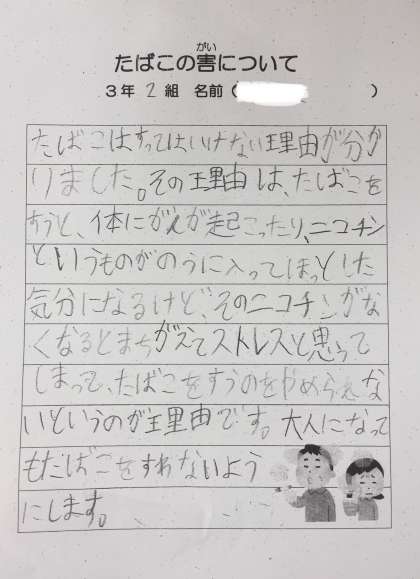 がい
たばこの害について
3年 2 組 名前( )
たばこはすってはいけない理由が分か
りました。その理由は、たばこを
すうと、体にがんが起こったり、ニコチン
というものがのうに入ってほっとした
気分になるけど、そのニコチンがな
くなるとまちがえてストレスと思って
しまって、たばこをすうのをやめられな
いというのが理由です。大人になって
もたばこをすわないよう
にします。